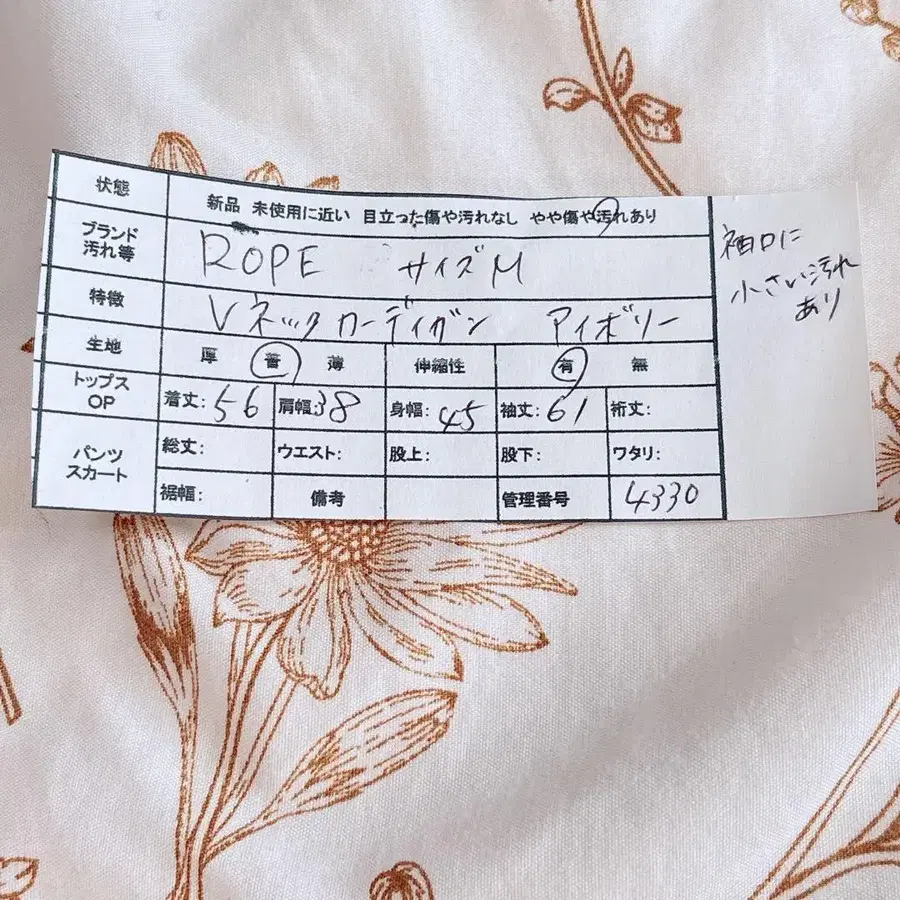 状態 新品 未使用に近い 目立った傷や汚れなし やや傷や汚れあり
ブランド 汚れ等 ROPE サイズM
特徴 Vネックカーディガン アイボリー
生地 厚 普 薄 伸縮性 有 無
トップス OP 着丈:56 肩幅38 身幅:45 袖丈:61 裄丈:
パンツ スカート 総丈: ウエスト: 股上: 股下: ワタリ:
裾幅: 備考 管理番号 4330
袖口に
小さい汚れ
あり